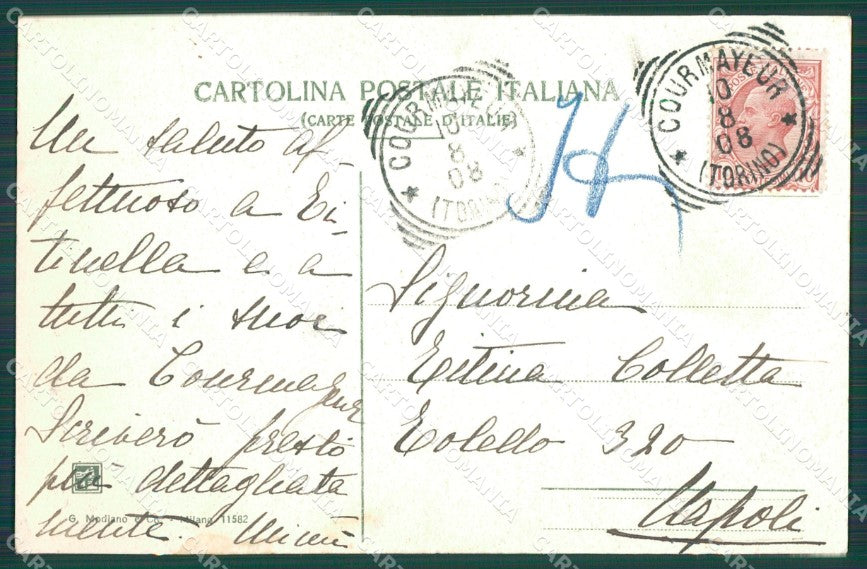 CARTOLINA POSTALE ITALIANA
(CARTE POSTALE D'ITALIE)
COURMAYEUR
10
8
08
(TORINO)
COURMAYEUR
10
8
08
(TORINO)
Un saluto af-
fettuoso a Ti-
tinella e a
tutti i suoi
da Courmayeur
Scriverò presto
più dettagliata
mente. Mimì
G. Modiano e C. - Milano 11582
Signorina
Titina Colletta
Toledo 320
Napoli